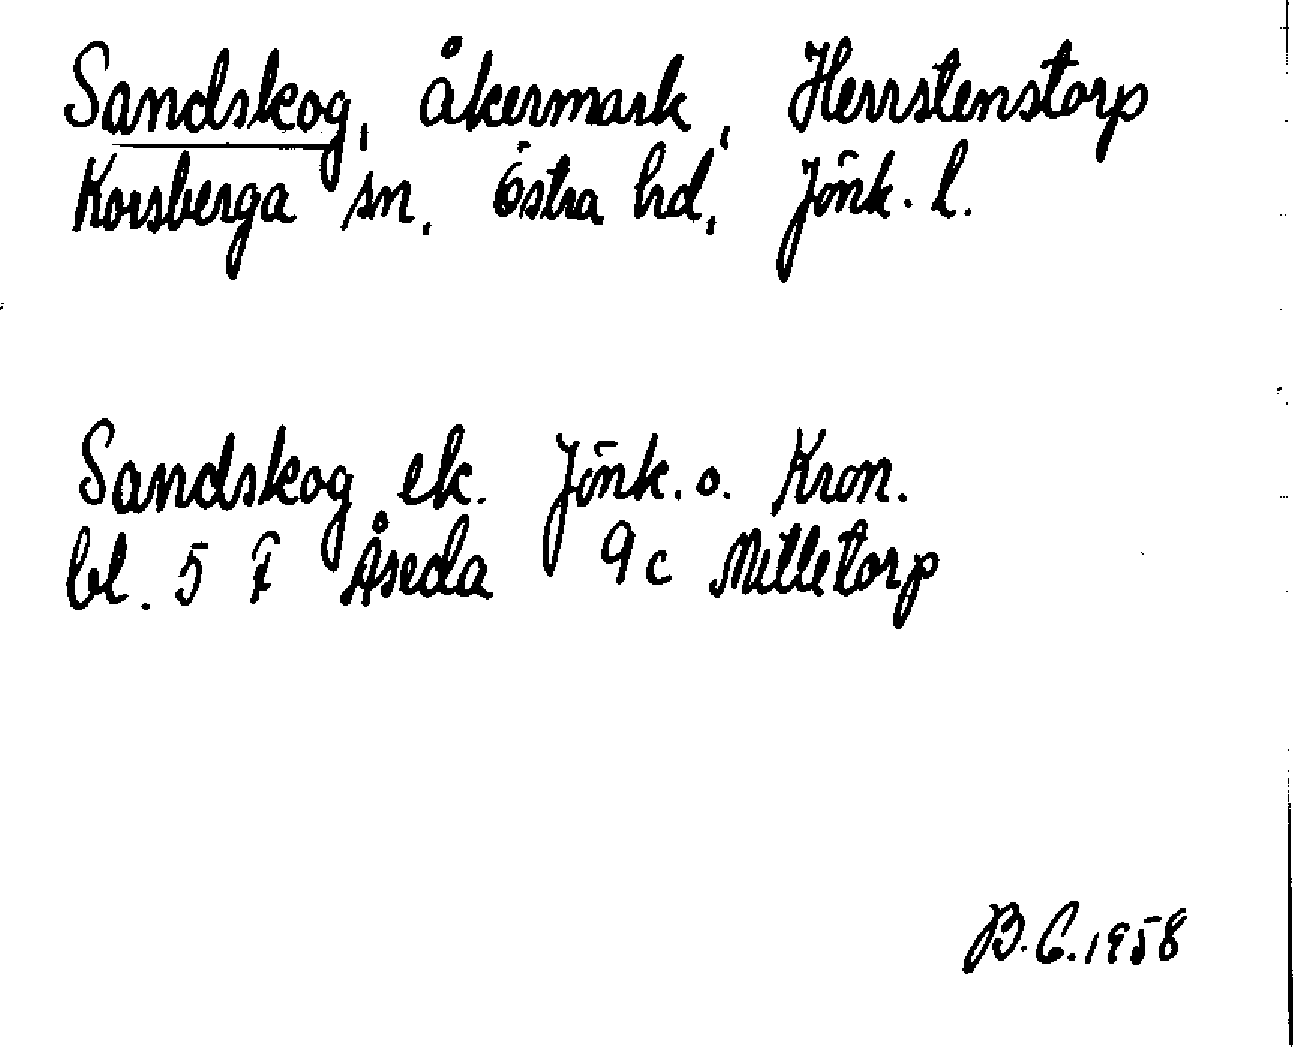 Sandskog, åkermark, Herrstenstorp
Korsberga sn. Östra hd, Jönk. l.
Sandskog ek. Jönk. o. Kron.
bl. 5 F Åseda 9c Milletorp
B.C. 1958